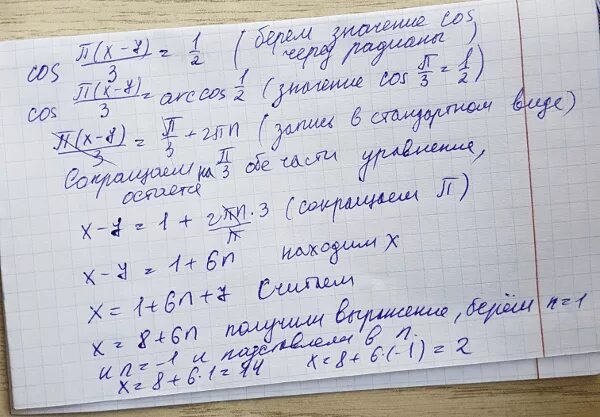 cos π(x-7)/3 = 1/2 (берем значение cos через радианы)
cos π(x-7)/3 = arccos 1/2 (значение cos π/3 = 1/2)
π(x-7)/3 = π/3 + 2πn (запись в стандартном виде)
Сокращаем на π/3 обе части уравнение,
остается
x-7 = 1 + 2πn·3/π (сокращаем π)
x-7 = 1+6n находим x
x = 1+6n+7 Считаем
x = 8+6n получили выражение, берём n=1
и n=-1 и подставляем в n.
x = 8+6·1=14 x=8+6·(-1)=2